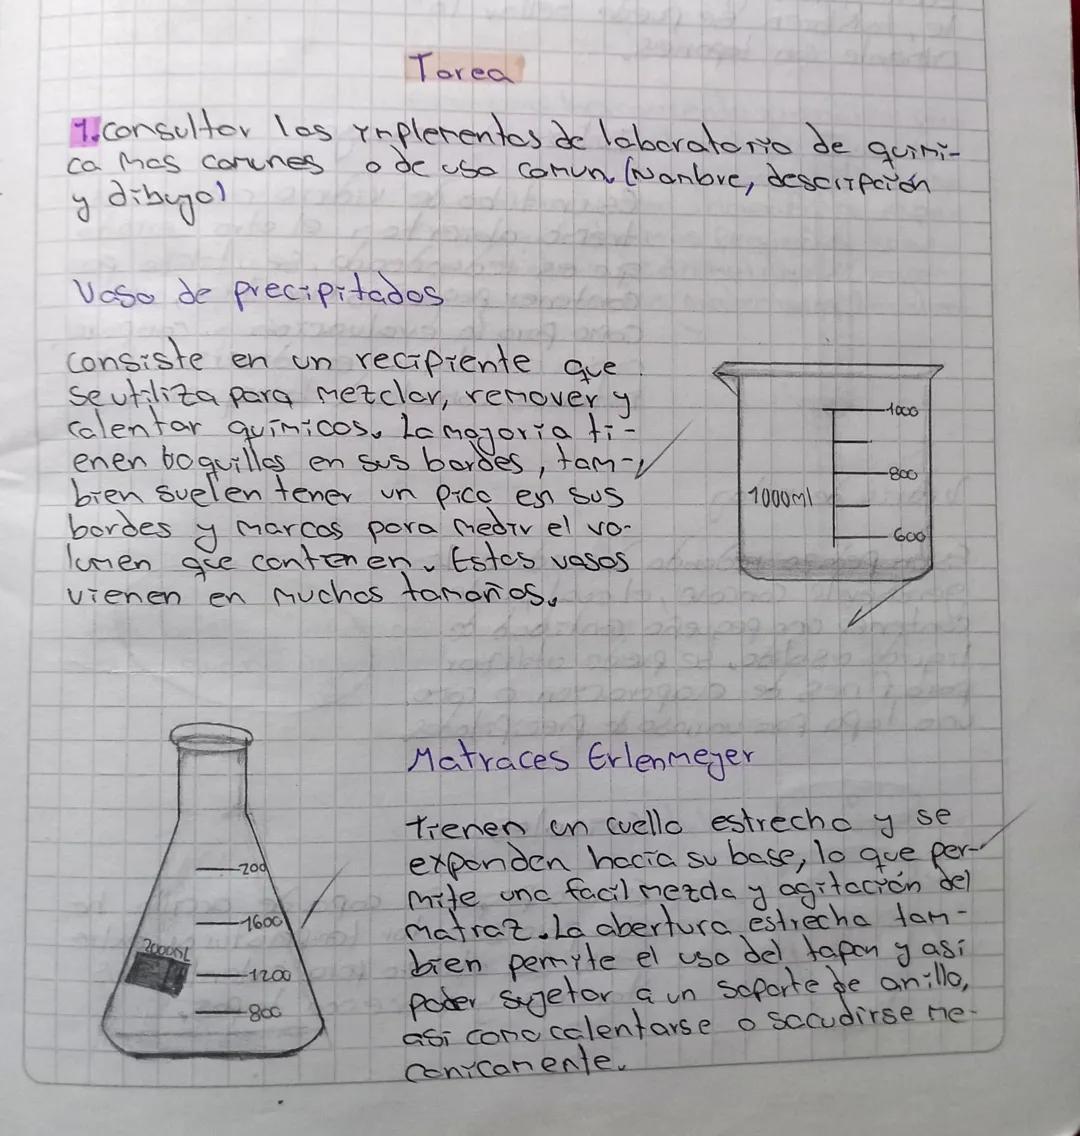 Tarea
1. consultar los ynplementos de laboratorio de quimi-
ca mas comunes o de uso comun (Nombre, descripción
y dibujo)
Vaso de precipitados
consiste en un recipiente que
se utiliza para mezclar, remover y
calentar químicos. La mayoría ti-
enen boquillas en sus bordes, tam-
bien suelen tener un pico en sus
bordes y marcas para medir el vo-
lumen que contienen. Estos vasos
vienen en muchos tamaños.
1000
800
1000ml
600
Matraces Erlenmeyer
tienen un cuello estrecho y se
expanden hacia su base, lo que per-
mite una facil mezcla y agitación del
matraz. La abertura estrecha tam-
bien permite el uso del tapon y así
poder sujetar a un soporte de anillo,
así como calentarse o sacudirse me-
canicamente.
200
1600
1200
800